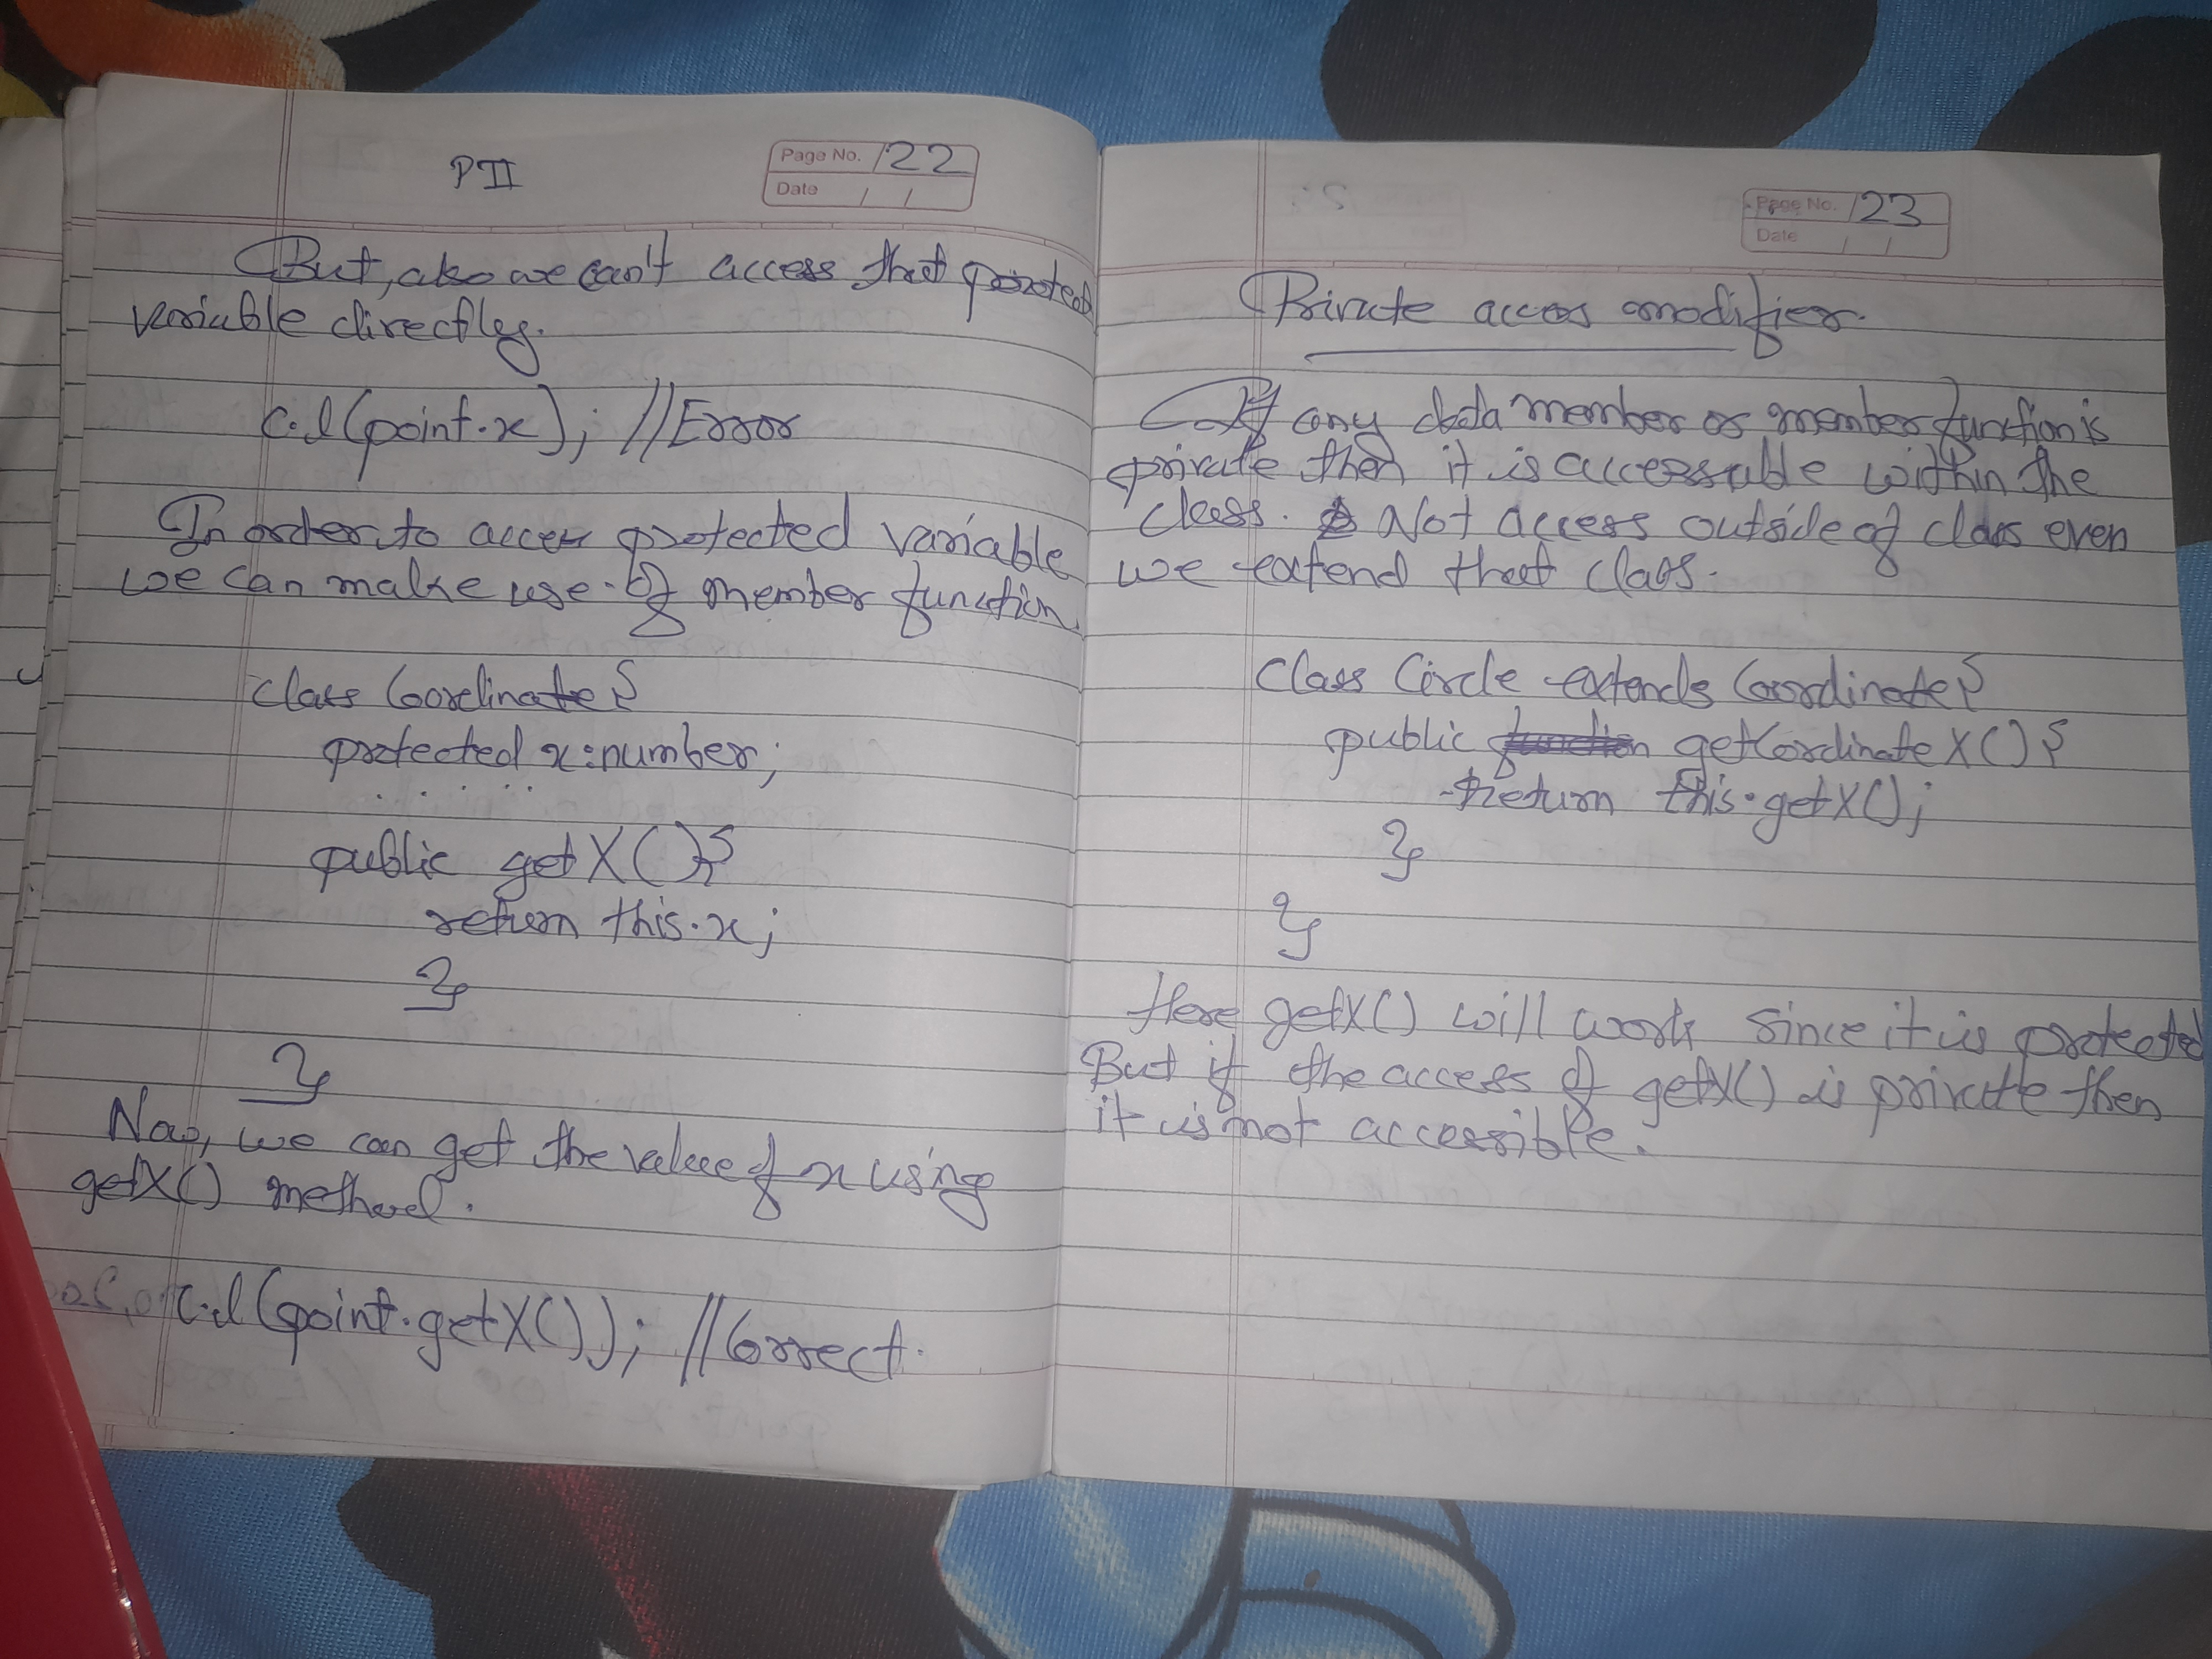 PII
Page No. 122
Date / /
But, also we can't access that protected
variable directly.
c.l(point.x); //Error
In order to access protected variable
we can make use of member function.
class Coordinate{
protected x:number;
. . . . .
public getX(){
return this.x;
}
}
Now, we can get the value of x using
getX() method.
c.l(point.getX()); //Correct.
Page No. 123
Date / /
Private access modifier.
If any data member or member function is
private then it is accessable within the
class. Not access outside of class even
we extend that class.
class Circle extends Coordinate{
public getCordinateX(){
return this.getX();
}
}
Here getX() will work since it is protected
But if the access of getX() is private then
it is not accessible.